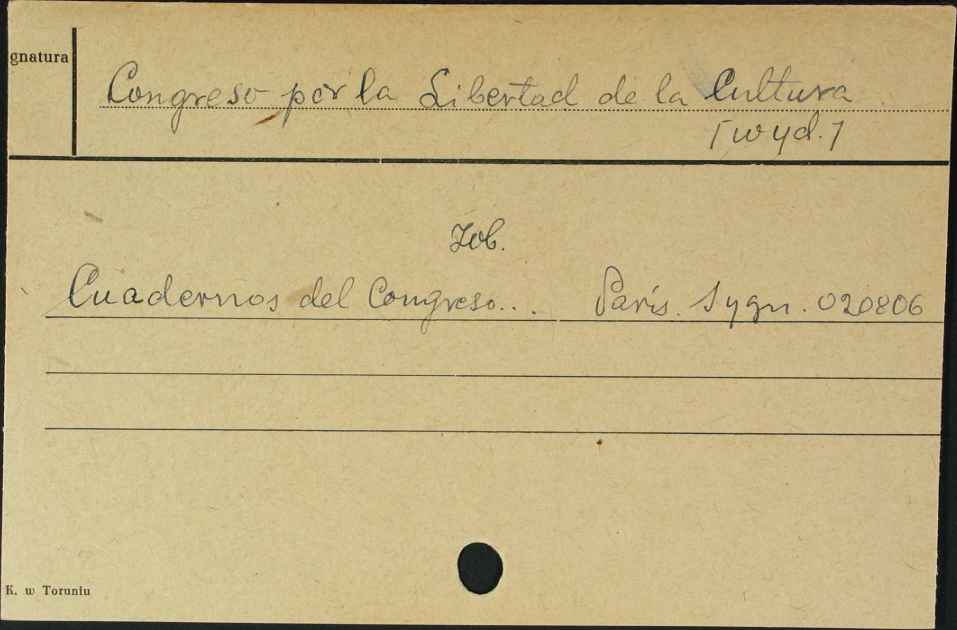 gnatura
Congreso por la Libertad de la Cultura
[wyd.]
Zob.
Cuadernos del Congreso... Paris. Sygn. 020806
K. w Toruniu